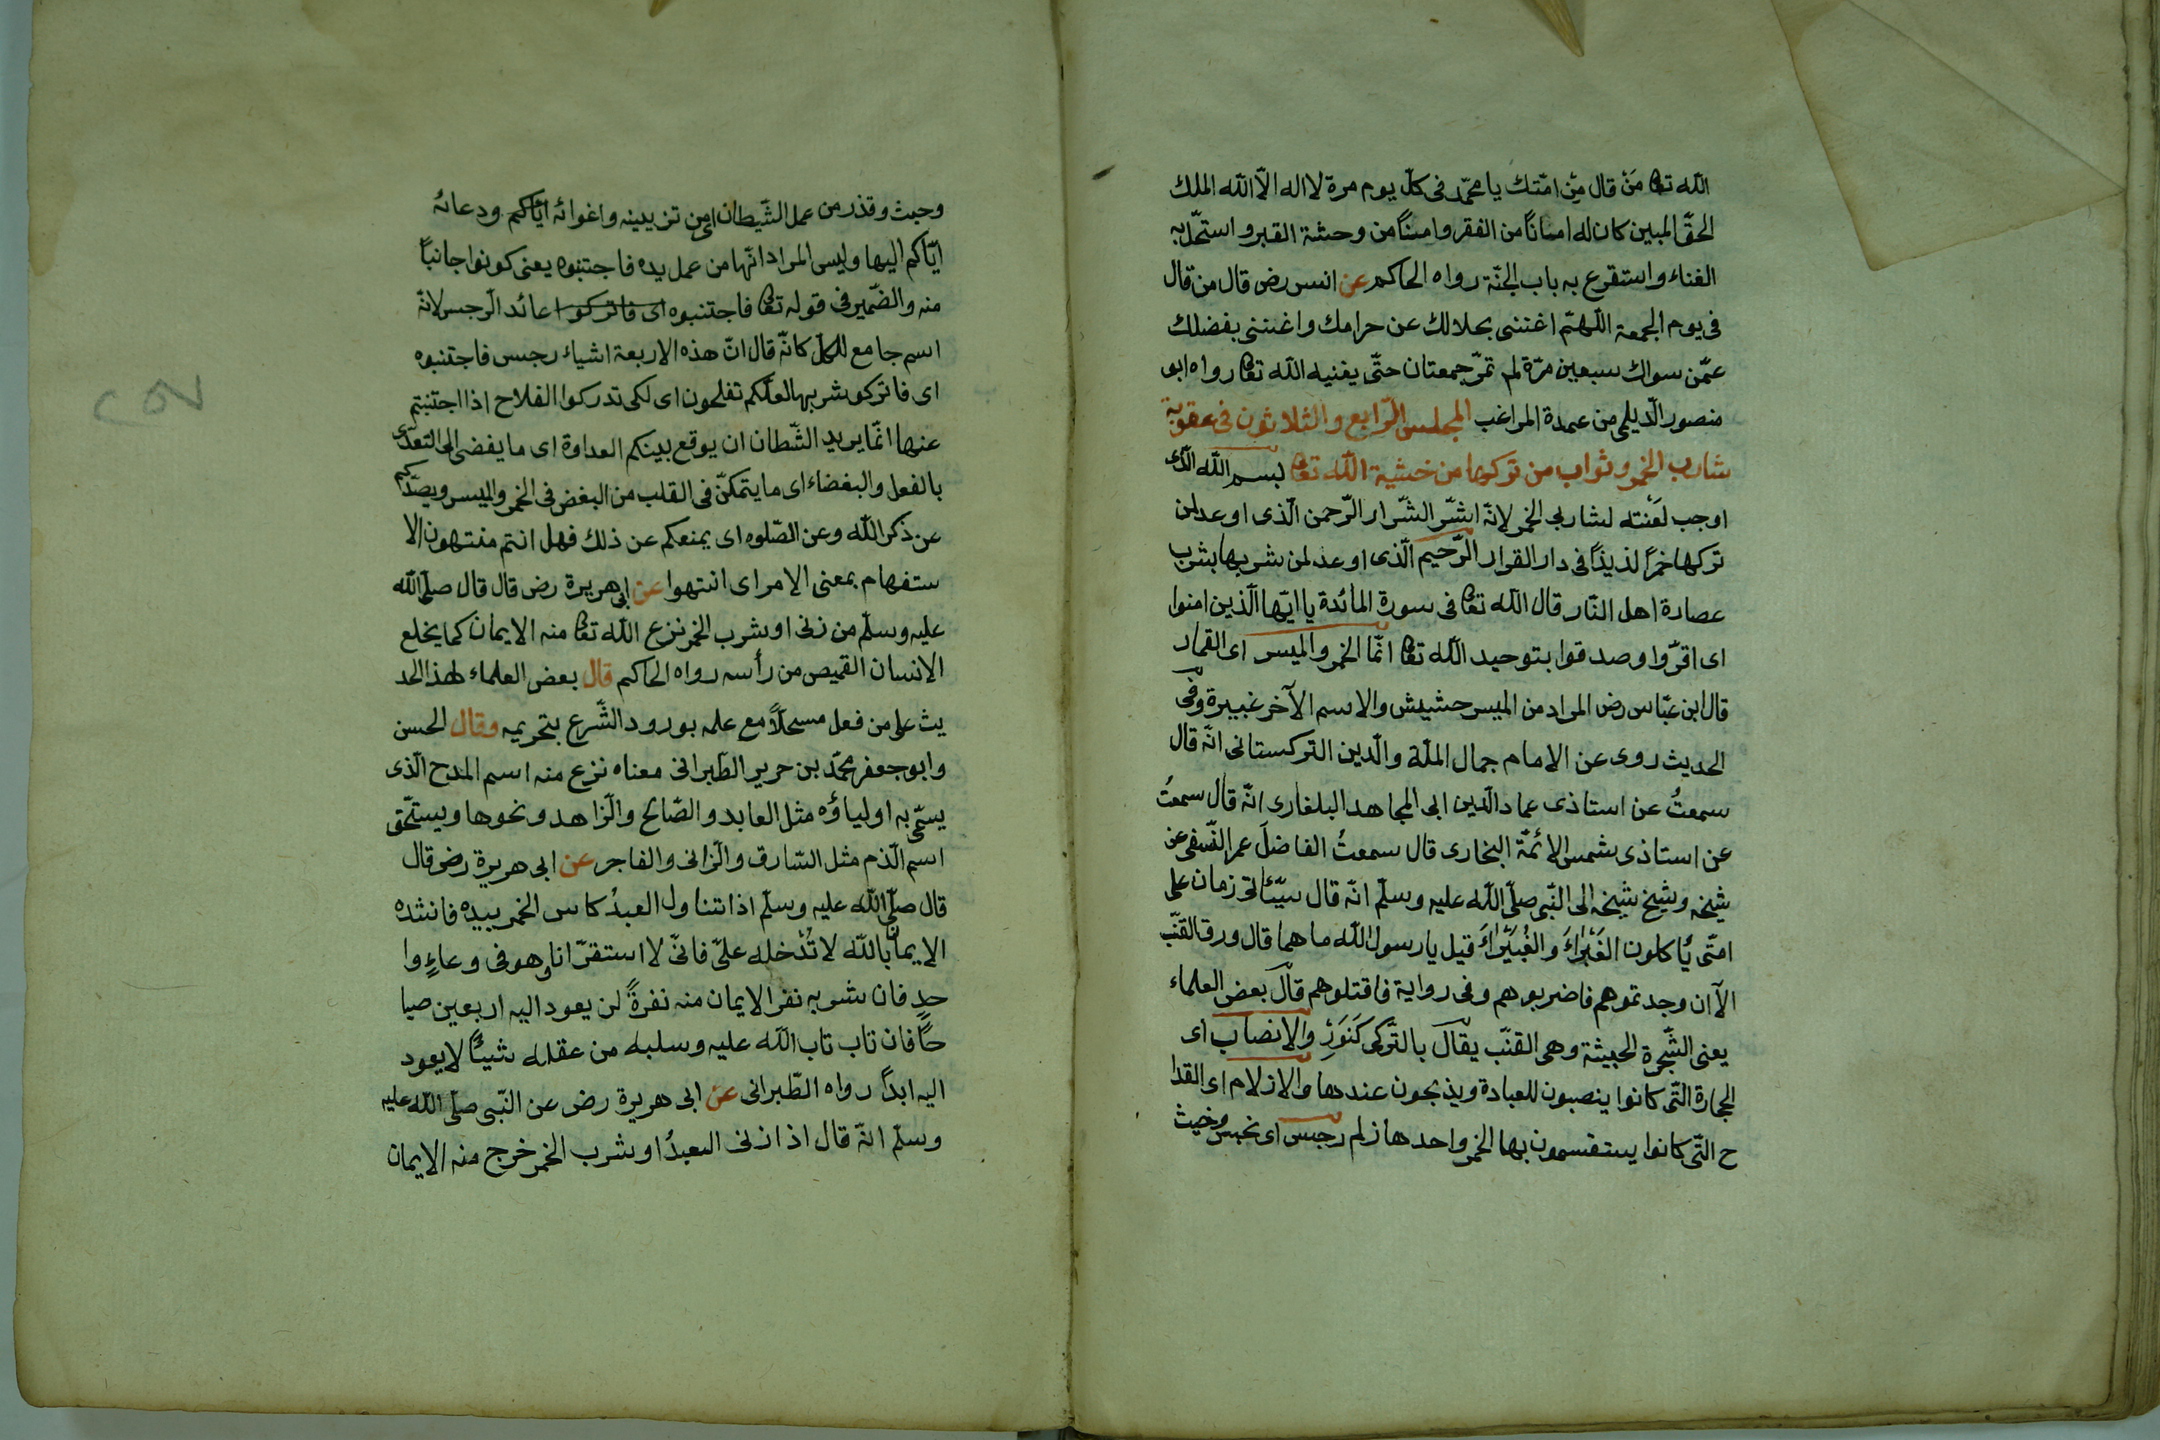 الله تعا مَنْ قال مِنْ امّتك يا محمّد فى كلّ يوم مرة لا اله الّا الله الملك
الحقّ المبين كان له امانًا من الفقر وامنًا من وحشة القبر واستحلّ به
الغناء واستقرع به باب الجنّة رواه الحاكم عن انس رض قال من قال
فى يوم الجمعة اللهمّ اغننى بحلالك عن حرامك واغننى بفضلك
عمّن سواك سبعين مرّة لم تمرّ جمعتان حتّى يغنيه الله تعا رواه ابو
منصور الدّيلمى من عمدة المراغب المجلس الرّابع والثلاثون فى عقوبة
شارب الخمر وثواب من تركها من خشية الله تعا بسم الله الّذى
اوجب لَعْنته لشاربى الخمر لانّه اشرّ الشّرار الرّحمن الّذى اوعد لمن
تركها خمرًا لذيذًا فى دار القرار الرّحيم الّذى اوعد لمن شربها بشرب
عصارة اهل النّار قال الله تعا فى سورة المائدة يا ايّها الّذين امنوا
اى اقرّوا وصدقوا بتوحيد الله تعا انّما الخمر والميسر اى القمار
قال ابن عبّاس رض المراد من الميسر حشيش والاسم الآخر غبيرة وفى
الحديث روى عن الامام جمال الملّة والدّين التركستانى انّه قال
سمعتُ عن استاذى عماد الدّين ابى المجاهد البلغارى انّه قال سمعتُ
عن استاذى شمس الائمّة البخارى قال سمعتُ الفاضلَ عمر النّسفى عن
شيخه وشيخ شيخه الى النّبى صلّى الله عليه وسلّم انّه قال سيّأتى زمان على
امتّى يأكلون الغَبْرَاءَ والغُبَيْرَاءَ قيل يا رسول الله ما هما قال ورق القنّب
الآ ان وجدتموهم فاضربوهم وفى رواية فاقتلوهم قال بعض العلماء
يعنى الشّجرة الخبيثة وهى القنّب يقال بالتّركى كَنَوَرْ والانصاب اى
الحجارة التّى كانوا ينصبون للعبادة ويذبحون عندها والازلام اى القدا
ح التّى كانوا يستقسمون بها الخمر واحدها زلم رجس اى نجس وخبث
وخبث وقذر من عمل الشّيطان اى من تزيينه واغوائه ايّاكم ودعائه
ايّاكم اليها وليس المراد انّها من عمل يده فاجتنبوه يعنى كونوا جانبًا
منه والضّمير فى قوله تعا فاجتنبوه اى فاتركوا عائد الرجس لانّه
اسم جامع للكلّ كانّه قال انّ هذه الاربعة اشياء رجس فاجتنبوه
اى فاتركو شربها لعلّكم تفلحون اى لكى تدركوا الفلاح اذا اجتنبتم
عنها انّما يريد الشّطان ان يوقع بينكم العداوة اى ما يفضى الى التعدّى
بالفعل والبغضاء اى ما يتمكنّ فى القلب من البغض فى الخمر والميسر ويصدّكم
عن ذكر الله وعن الصّلوه اى يمنعكم عن ذلك فهل انتم منتهون الا
ستفهام بمعنى الامر اى انتهوا عن ابى هريرة رض قال قال صلّى الله
عليه وسلّم من زنى او شرب الخمر نزع الله تعا منه الايمان كما يخلع
الانسان القميص من رأسه رواه الحاكم قال بعض العلماء لهذا الحد
يث على من فعل مسحلّاً مع علمه بورود الشّرع بتحريمه وقال الحسن
وابو جعفر محمّد بن حرير الطّبرانى معناه نزع منه اسم المدح الّذى
يسمّى به اولياؤه مثل العابد والصّالح والزّاهد ونحوها ويستحّق
اسم الذّم مثل السّارق والزّانى والفاجر عن ابى هريرة رض قال
قال صلّى الله عليه وسلّم اذا تناول العبدُ كاس الخمر بيده فانشده
الايمان بالله لا تُدْخله علىّ فانّى لا استقرّ انا وهو فى وعاءٍ وا
حدٍ فان شربه نفر الايمان منه نفرةً لن يعود اليه اربعين صبا
حًا فان تاب تاب الله عليه وسلبه من عقله شيئًا لا يعود
اليه ابدًا رواه الطّبرانى عن ابى هريرة رض عن النّبى صلّى الله عليه
وسلّم انّه قال اذا زنى العبدُ او شرب الخمر خرج منه الايمان